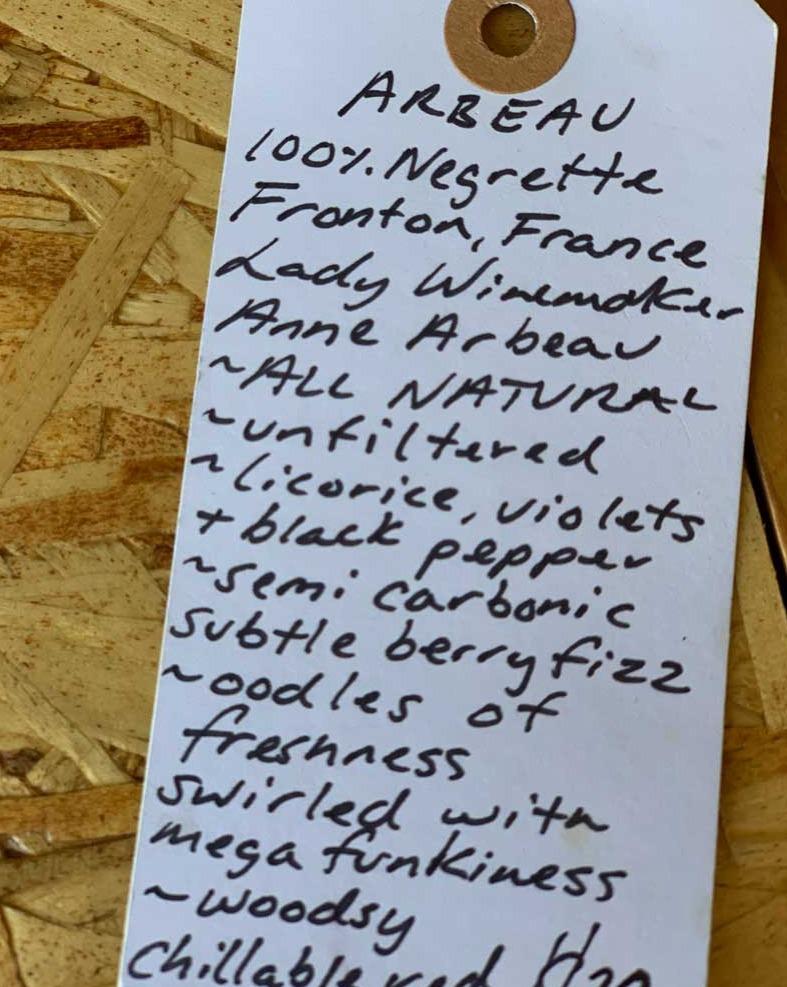 ARBEAU
100% Negrette
Fronton, France
Lady Winemaker
Anne Arbeau
~ALL NATURAL
~unfiltered
~licorice, violets
+ black pepper
~semi carbonic
subtle berry fizz
~oodles of
freshness
swirled with
mega funkiness
~woodsy
Chillable red